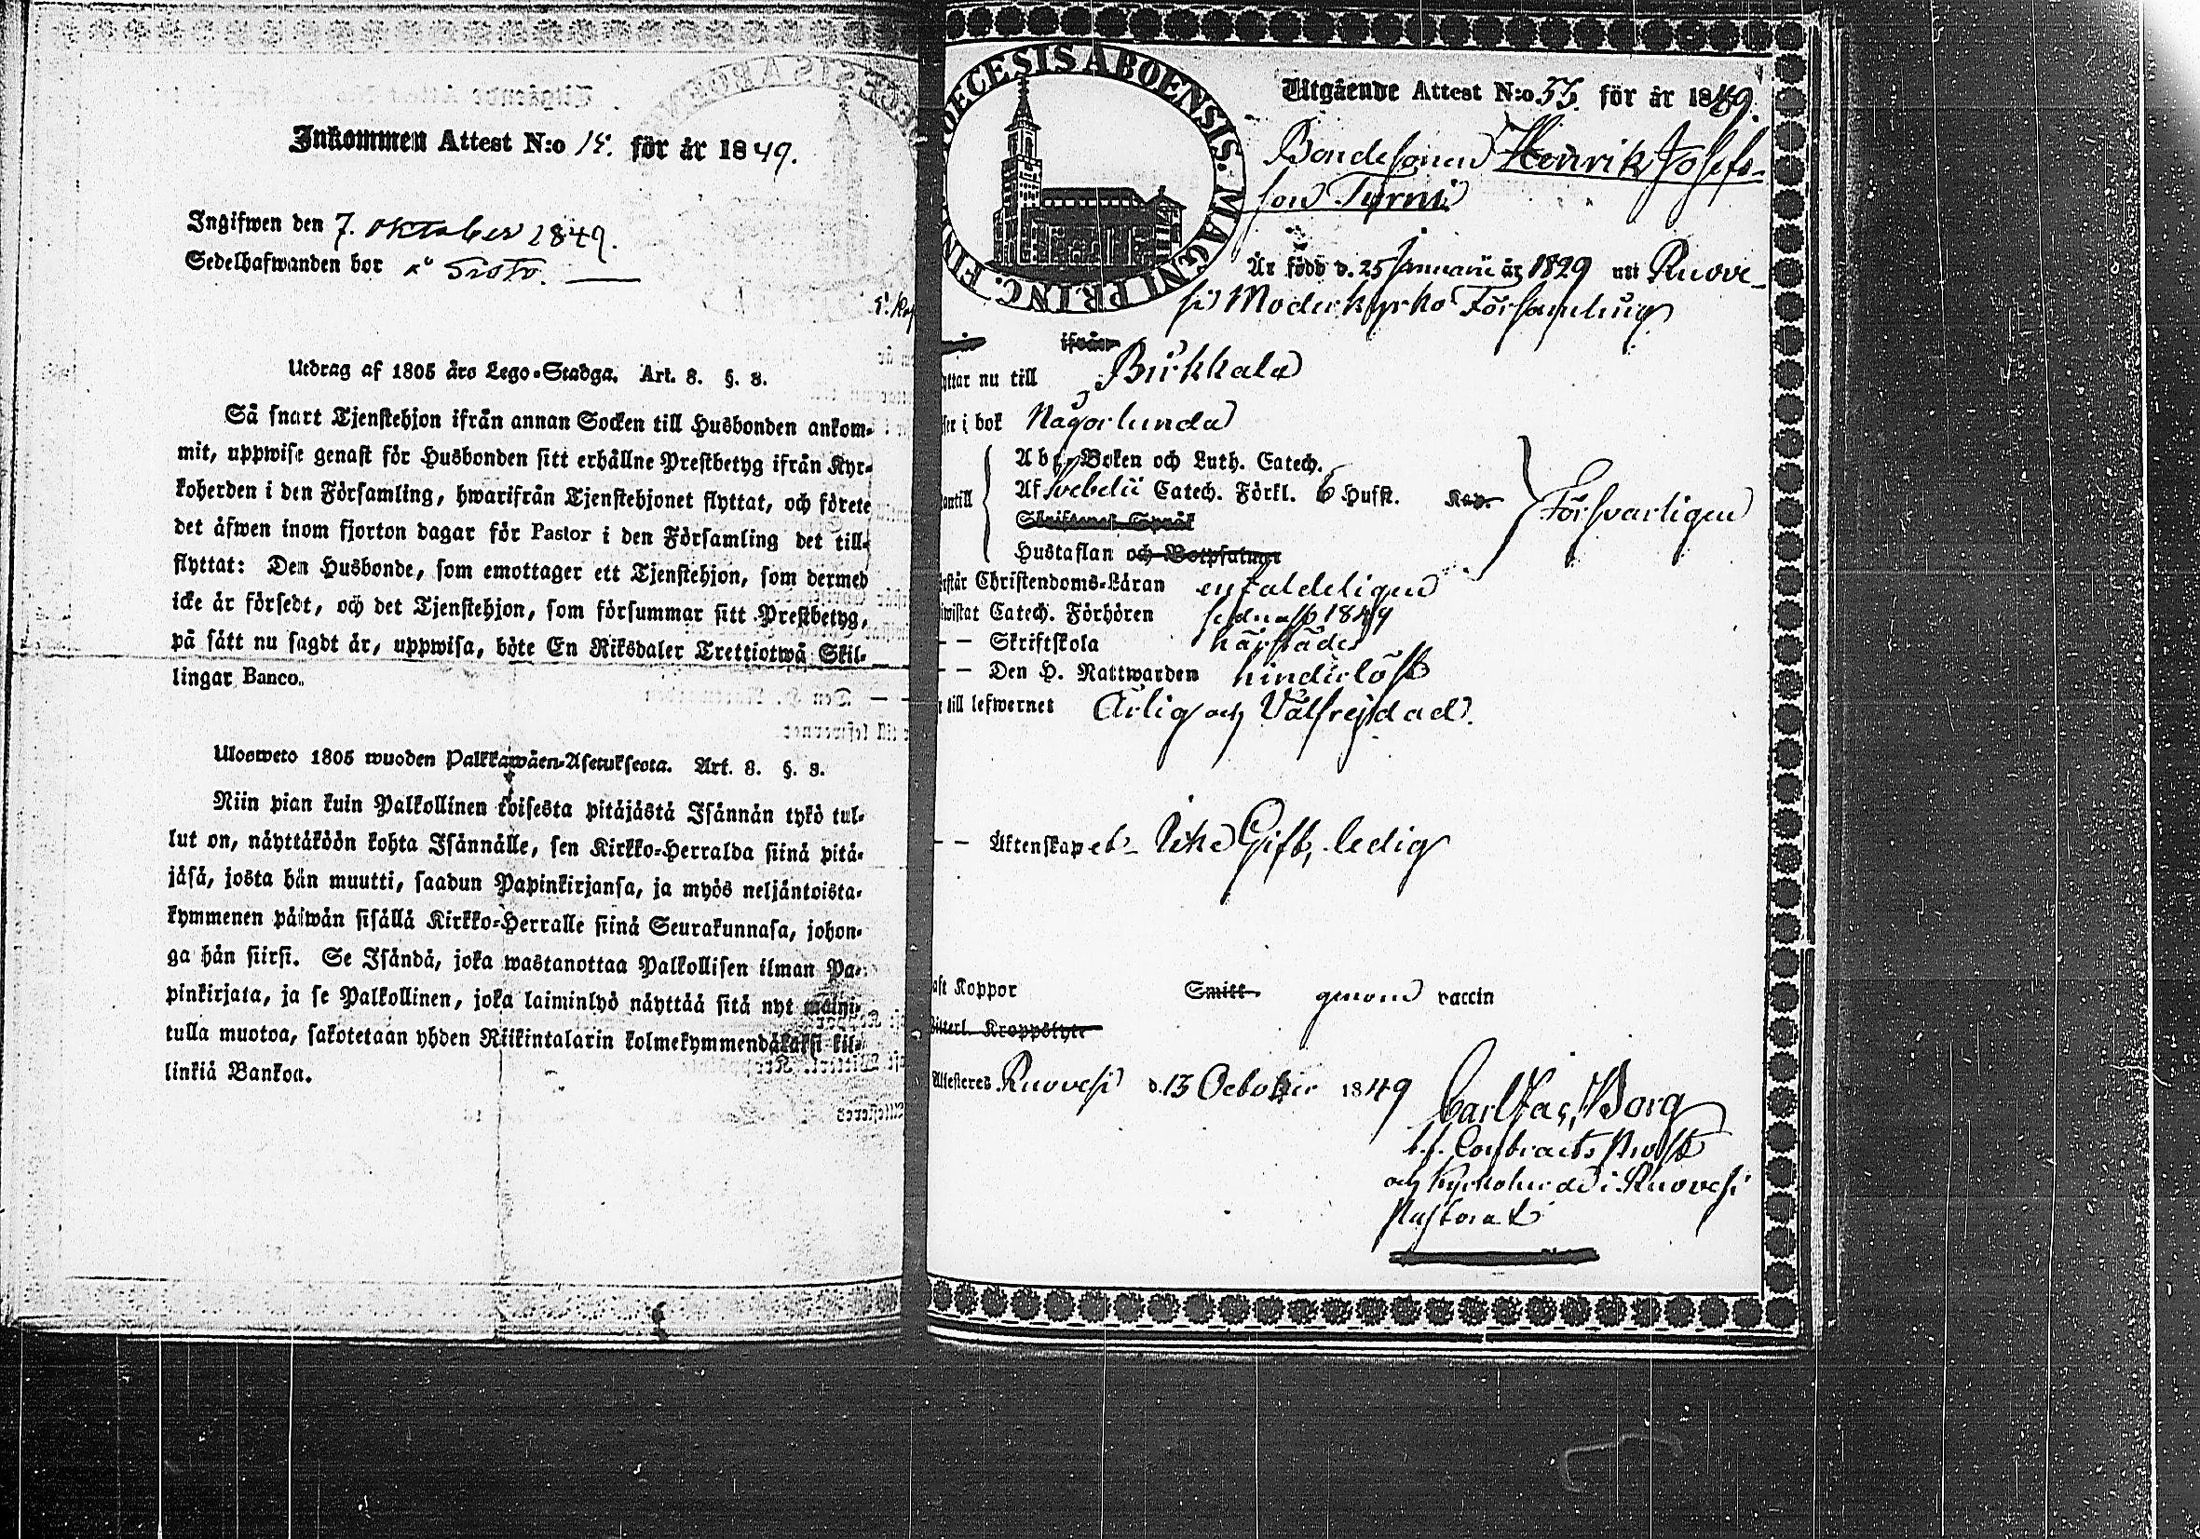 Inkommen Attest N:o 15. för år 1849.
Ingifwen den 7. oktober 1849.
Sedelhafwanden bor
Utdrag af 1805 års Lego-Stadga. Art. 8. §. 8.
Så snart Tjenstehjon ifrån annan Socken till Husbonden ankom-
mit, uppwise genast för Husbonden sitt erhållne Prestbetyg ifrån Kyr-
koherden i den Församling, hwarifrån Tjenstehjonet flyttat, och förete
det äfwen inom fjorton dagar för Pastor i den Församling det till-
flyttat: Den Husbonde, som emottager ett Tjenstehjon, som dermed
icke är försedt, och det Tjenstehjon, som försummar sitt Prestbetyg,
på sätt nu sagdt är, uppwisa, böte En Riksdaler Trettiotwå Skil-
lingar Banco.
Ulosweto 1805 wuoden Palkkawäen-Asetuksesta. Art. 8. §. 8.
Niin pian kuin Palkollinen toisesta pitäjästä Isännän tykö tul-
lut on, näyttäköön kohta Isännälle, sen Kirkko-Herralda siinä pitä-
jäsä, josta hän muutti, saadun Papinkirjansa, ja myös neljäntoista-
kymmenen päiwän sisällä Kirkko-Herralle siinä Seurakunnasa, johon-
ga hän siirsi. Se Isändä, joka wastanottaa Palkollisen ilman Pa-
pinkirjata, ja se Palkollinen, joka laiminlyö näyttää sitä nyt maini-
tulla muotoa, sakotetaan yhden Riikintalarin kolmekymmendäkaksi kil-
linkiä Bankoa.
DIOECESIS ABOENSIS. MAGNI PRINC. FIN
Utgående Attest N:o 55. för år 1849.
Bondesonen Henrik Josefs-
son Turni
Är född d. 25 Januarii år 1829 uti Ruove-
si Moderkyrko Församling
ifrån
yttar nu till Birkkala
ser i bok Någorlunda
Abc-Boken och Luth. Catech.
antill Af Svebelii Catech. Förkl. 6 Hufst. Kap. Försvarligen
Skriftenes Språk
Hustaflan och Botpsalmer
rstår Christendoms-Läran enfaldeligen
iwistat Catech. Förhören sednast 1849
— — Skriftskola härstädes
— — Den H. Nattwarden hinderlöst
till lefwernet Ärlig och Välfrejdad.
— — Äktenskapet Icke Gift, ledig
aft Koppor Smitt genom vaccin
Witterl. Kroppslyte
Attesteres Ruovesi d. 13 October 1849
Carl Jac. Borg
t.f. Contracts Prost
och Kyrkoherde i Ruovesi
Pastorat